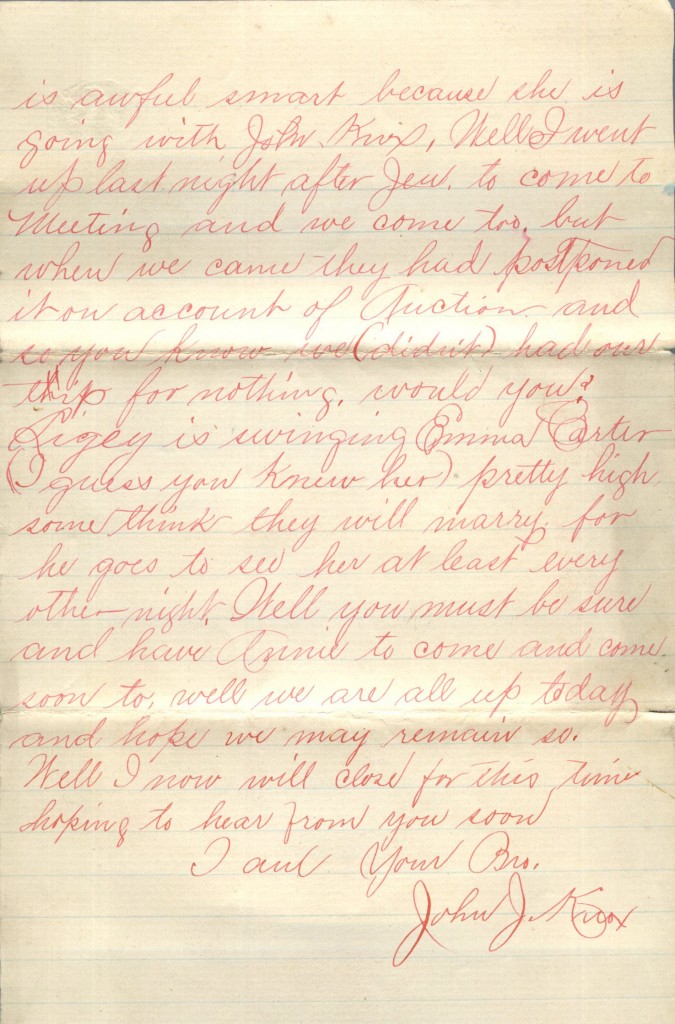 is awful smart because she is
going with John Knox, Well I went
up last night after Jen. to come to
Meeting and we come too, but
when we came they had postponed
it on account of Auction and
so you know we (didn't) had our
trip for nothing, would you?
Ligey is swinging Emma Carter
(I guess you knew her) pretty high
some think they will marry. for
he goes to see her at least every
other night. Well you must be sure
and have Annie to come and come
soon to, well we are all up today
and hope we may remain so.
Well I now will close for this time
hoping to hear from you soon
I am Your Bro.
John J. Knox